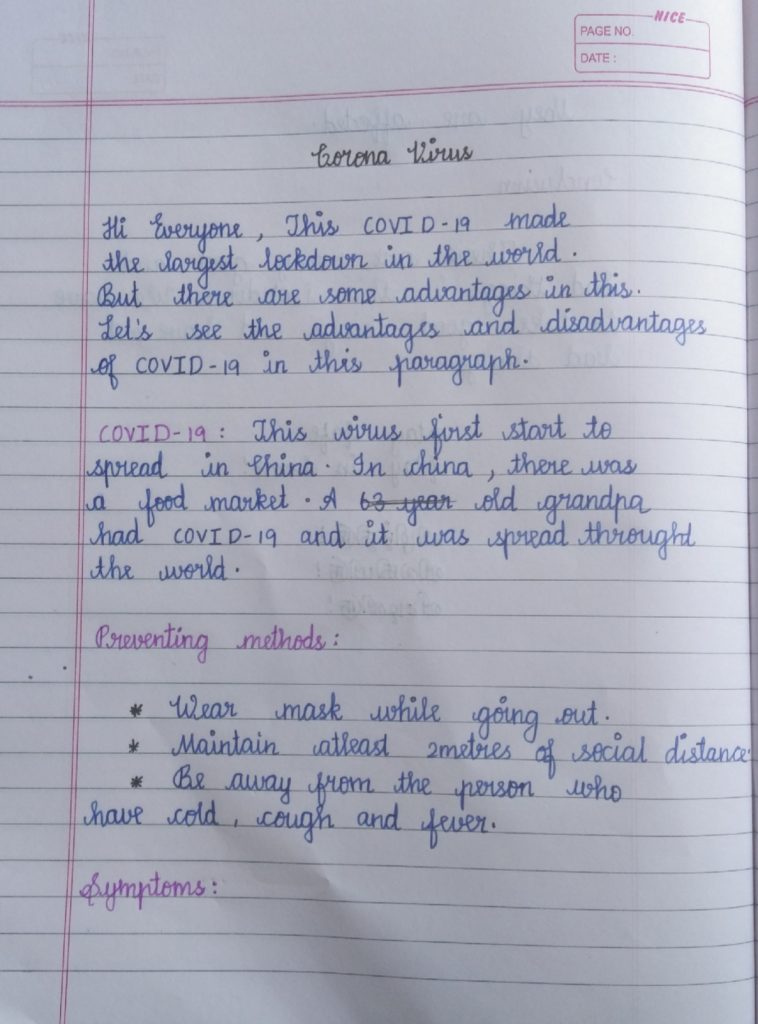 NICE
PAGE NO.
DATE :
Corona Virus
Hi Everyone, This COVID-19 made
the largest lockdown in the world.
But there are some advantages in this.
Let's see the advantages and disadvantages
of COVID-19 in this paragraph.
COVID-19 : This virus first start to
spread in China. In china, there was
a food market. A 63 year old grandpa
had COVID-19 and it was spread throught
the world.
Preventing methods :
* Wear mask while going out.
* Maintain atleast 2metres of social distance.
* Be away from the person who
have cold, cough and fever.
Symptoms :